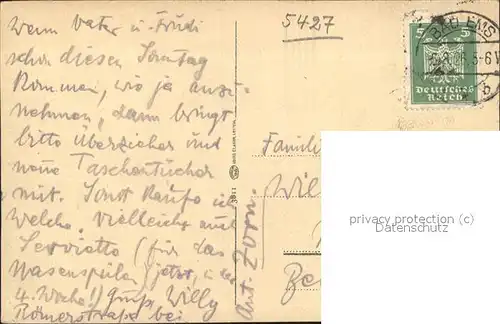 Wenn Vater u. Trudi
schon diesen Sonntag
kommen, wie ja anzu-
nehmen, dann bringt
bitte Überzieher und
neue Taschentücher
mit. Sonst kaufe ich
welche. Vielleicht auch
Serviette (für das
Nasenspülen) jetzt, in der
4. Woche!) Gruß, Willy
Römerstraße bei
Ant. Zorn.
5427
BAD EMS
5 5
Deutsches
Reich
3811
Famili
Wil
Be
privacy protection (c)
Datenschutz